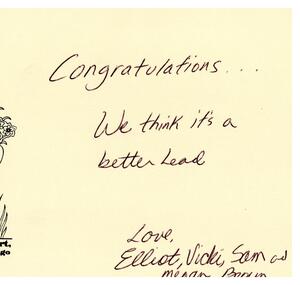 Congratulations...
We think it's a
better Lead
Love,
Elliot, Vicki, Sam and
Megan Brown
rt,
go